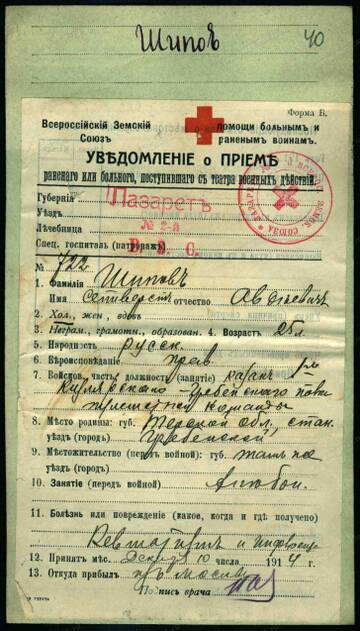 Шиповъ
40
Форма Б.
Всероссійскій Земскій помощи больнымъ и
Союзъ раненымъ воинамъ.
УВѢДОМЛЕНІЕ о ПРІЕМѢ
раненаго или больного, поступившаго съ театра военныхъ дѣйствій.
Губернія Лазаретъ
Уѣздъ № 2-й
Лѣчебница
Спец. госпиталь (патронажъ) В. З. С.
№ 722
1. Фамилія Шиповъ
Имя Селиверстъ отчество Авдѣевичъ
2. Хол., жен., вдовъ
3. Неграм., грамотн., образован. 4. Возрастъ 25 л
5. Народность русск.
6. Вѣроисповѣданіе прав.
7. Войсков. часть, должность (занятіе) казакъ
Кизляро-Гребенского полка
команды
8. Мѣсто родины: губ. Терской обл., стан.
уѣздъ (городъ) Гребенской
9. Мѣстожительство (передъ войной): губ. тамъ же
уѣздъ (городъ)
10. Занятіе (передъ войной)
11. Болѣзнь или поврежденіе (какое, когда и гдѣ получено)
Ревматизмъ и
12. Принятъ мѣс. Декабр. 10 числа 1914 г.
13. Откуда прибылъ изъ Москвы
Подпись врача